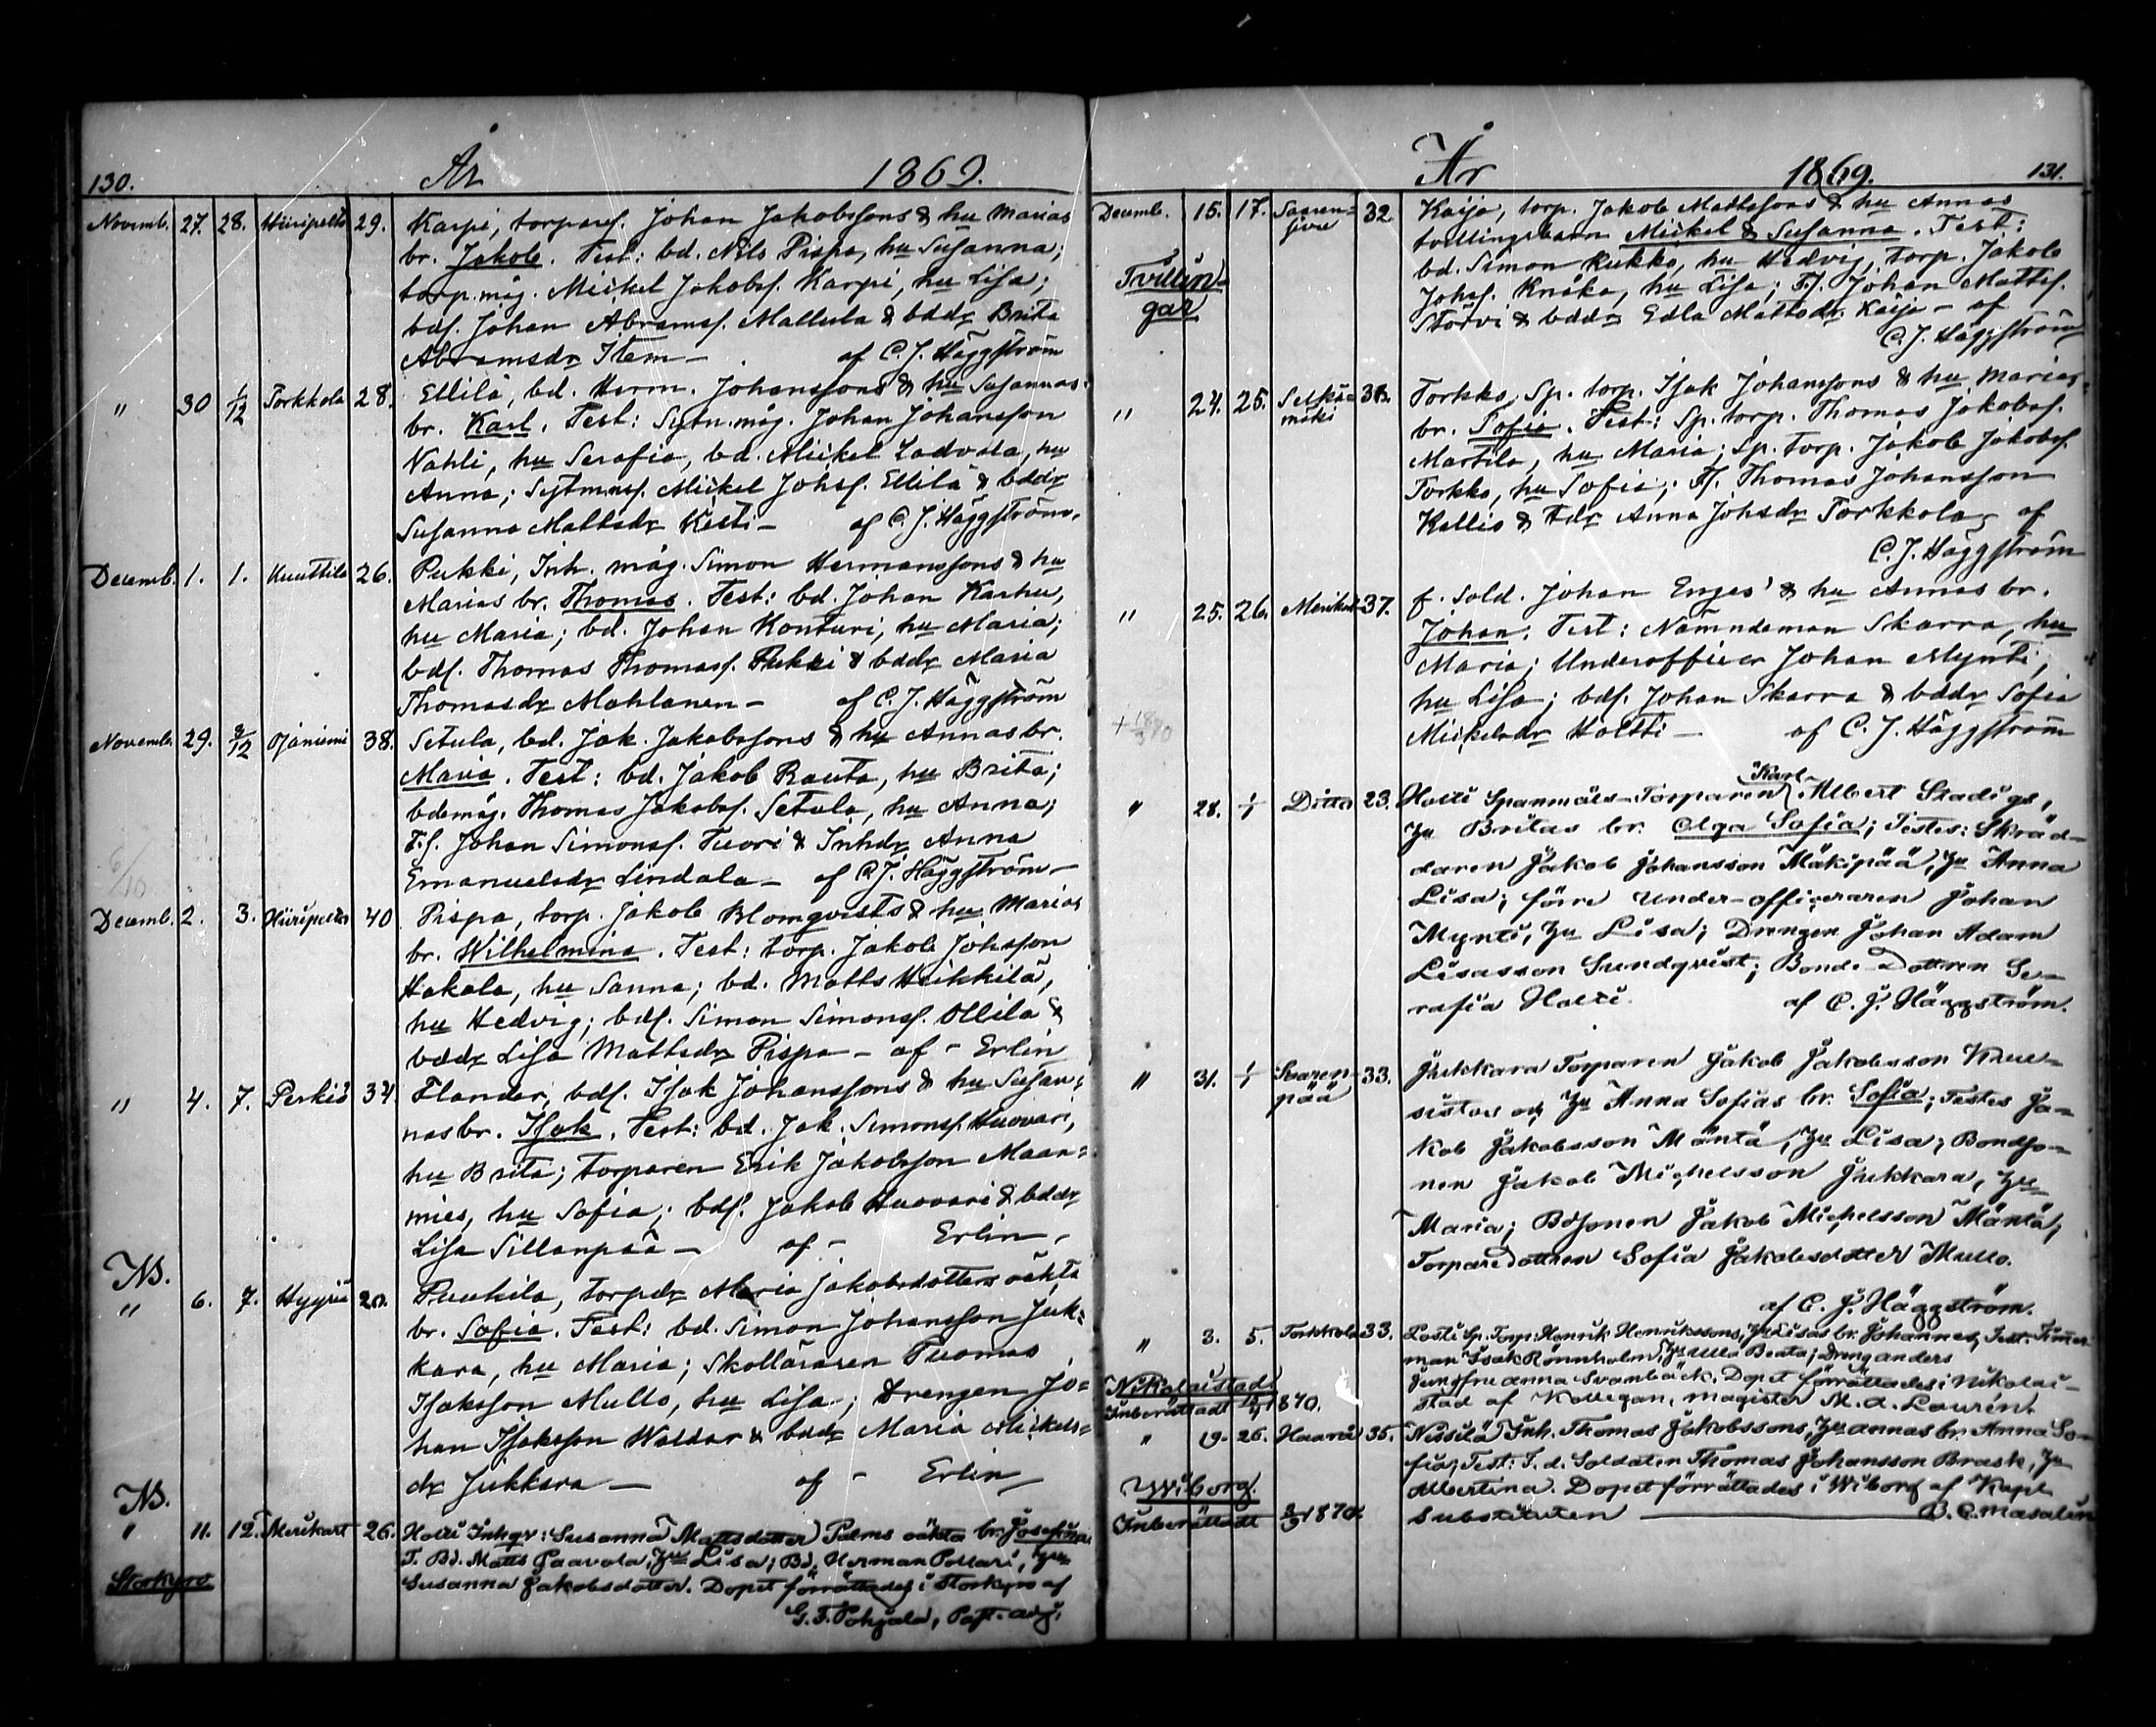 130.
År 1869.
Novemb. 27. 28. Hiiripelto 29. Karpi, torparef. Johan Jakobssons & hu Marias
br. Jakob. Test: bd. Nils Pispa, hu Susanna;
torp. måg. Mickel Jakobsf. Karpi, hu Lisa;
bdf. Johan Abramsf. Mallula & bddr Brita
Abramsdr Item – af C. J. Häggström
" 30 1/12 Torkkola 28. Ellilä, bd. Herm. Johanssons & hu Susannas
br. Karl. Test: Sytn. måg. Johan Johansson
Nahli, hu Serafia, bd. Mickel Ladvala, hu
Anna; Sytmnsf. Mickel Johsf. Ellilä & bddr
Susanna Mattsdr Kesti – af C. J. Häggström.
Decemb. 1. 1. Kuuttila 26. Pukki, Inh. måg. Simon Hermanssons & hu
Marias br. Thomas. Test: bd. Johan Karhu,
hu Maria; bd. Johan Konturi, hu Maria;
bdf. Thomas Thomasf. Pukki & bddr Maria
Thomasdr Mahlanen – af C. J. Häggström
Novemb. 29. 2/12 Ojaniemi 38. Setula, bd. Jak. Jakobssons & hu Annas br.
Maria. Test: bd. Jakob Rauta, hu Brita;
bdemåg. Thomas Jakobsf. Setula, hu Anna;
T.f. Johan Simonsf. Tuori & Inhdr Anna
Emanuelsdr Lindala – af C. J. Häggström –
Decemb. 2. 3. Hiiripelto 40 Pispa, torp. Jakob Blomqvists & hu Marias
br. Wilhelmina. Test: torp. Jakob Johsson
Hakala, hu Sanna; bd. Matts Heikkilä,
hu Hedvig; bdf. Simon Simonsf. Ollila &
bddr Lisa Mattsdr Pispa – af – Erlin
" 4. 7. Perkiö 34 Flander, bdf. Isak Johanssons & hu Susan-
nas br. Isak. Test: bd. Jak. Simonsf. Huovari,
hu Brita; torparen Erik Jakobsson Maan-
mies, hu Sofia; bdf. Jakob Huovari & bddr
Lisa Sillanpää – af – Erlin.
NB.
" 6. 7. Hyyriä 20. Puukila, torpdr Maria Jakobsdotters oäkta
br. Sofia. Test: bd. Simon Johansson Juk-
kara, hu Maria; Skolläraren Tuomas
Isaksson Mullo, hu Lisa; Drengen Jo-
han Isaksson Waldar & bddr Maria Mickels-
dr Jukkara – af – Erlin
NB.
" 11. 12. Merikart 26. Holti Inhgr: Susanna Mattsdotter Palms oäkta br. Josefina.
T. Bd. Matts Paavola, hu Lisa; Bd. Herman Pollari, hu
Storkyro Susanna Jakobsdotter. Dopet förrättades i Storkyro af
G. F. Pohjala, Past. adj.
År 1869. 131.
Decemb. 15. 17. 32. Kaija, torp. Jakob Mattssons & hu Annas
tvillingsbarn Mickel & Susanna. Test:
Tvillin-
gar
bd. Simon Kukko, hu Hedvig, torp. Jakob
Johsf. Knåka, hu Lisa; T.f. Johan Mattsf.
Storvi & bddr Edla Mattsdr Kaija – af
C. J. Häggström
" 24. 25. Selkä-
mäki Torkko, Sp. torp. Isak Johanssons & hu Marias
br. Sofia. Test: Sp. torp. Thomas Jakobsf.
Martila, hu Maria; Sp. torp. Jakob Jakobsf.
Torkko, hu Sofia; T.f. Thomas Johansson
Kallio & Tdr Anna Johsdr Torkkola – af
C. J. Häggström
" 25. 26. Merikart 37. f. Sold. Johan Enges' & hu Annas br.
Johan. Test: Nämndeman Skarra, hu
Maria; Underofficer Johan Mynti,
hu Lisa; bdf. Johan Skarra & bddr Sofia
Mickelsdr Holtti – af C. J. Häggström
" 28. 1/1 Ditto 23. Holti Spanmåls-Torparen Karl Albert Stadigs,
hu Britas br. Olga Sofia; Testes: Skräd-
daren Jakob Johansson Mäkipää, hu Anna
Lisa; förre Under-officeraren Johan
Mynti, hu Lisa; Drengen Johan Adam
Lisasson Sundqvist; Bonde-Dottren Se-
rafia Holti. af C. J. Häggström.
" 31. 1/1 Saaren-
pää 33. Jukkara Torparen Jakob Jakobsson
och hu Anna Sofias br. Sofia; Testes Ja-
kob Jakobsson Mäntä, hu Lisa; Bondso-
nen Jakob Michelsson Jukkara, hu
Maria; Bdsonen Jakob Michelsson Mäntä,
Torparedottren Sofia Jakobsdotter Mullo.
af C. J. Häggström.
" 3. 5. Torkkola 33. Losti Sp. Torp: Henrik Henrikssons, hu Lisas br. Johannes, Test: Timer-
man Isak Rönnholm, hu Ulla Beata; Dreng Anders
Jungfru Anna Svanbäck. Dopet förrättades i Nikolai-
stad af Kollegan, magister M. A. Laurén.
Nikolaistad
Inberättadt 1870.
" 19. 26. Haarå 35. Nissilä Inh. Thomas Jakobssons, hu Annas br. Anna So-
fia, Test: F. d. Soldaten Thomas Johansson Brask, hu
Albertina. Dopet förrättades i Wiborg af Kapl.
Substituten B. C. Masalin
Wiborg.
Inberättadt 1870.